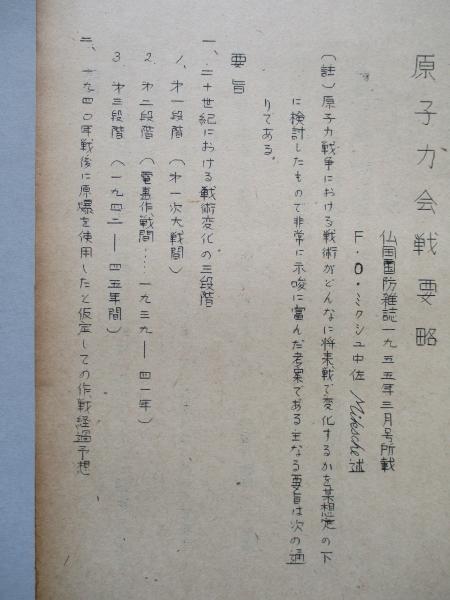 原子力会戦要略
仏国国防雑誌一九五五年三月号所載
F・O・ミクシュ中佐 Miksche述
（註）原子力戦争における戦術がどんなに将来戦で変化するかを某想定の下
に検討したもので非常に示唆に富んだ考案である主なる要旨は次の通
りである。
要旨
一、二十世紀における戦術変化の三段階
1、才一段階（才一次大戦間）
2．才二段階（電撃作戦間‥‥一九三九—四一年）
3．才三段階（一九四二—四五年間）
二、一九四〇年戦役に原爆を使用したと仮定しての作戦経過予想